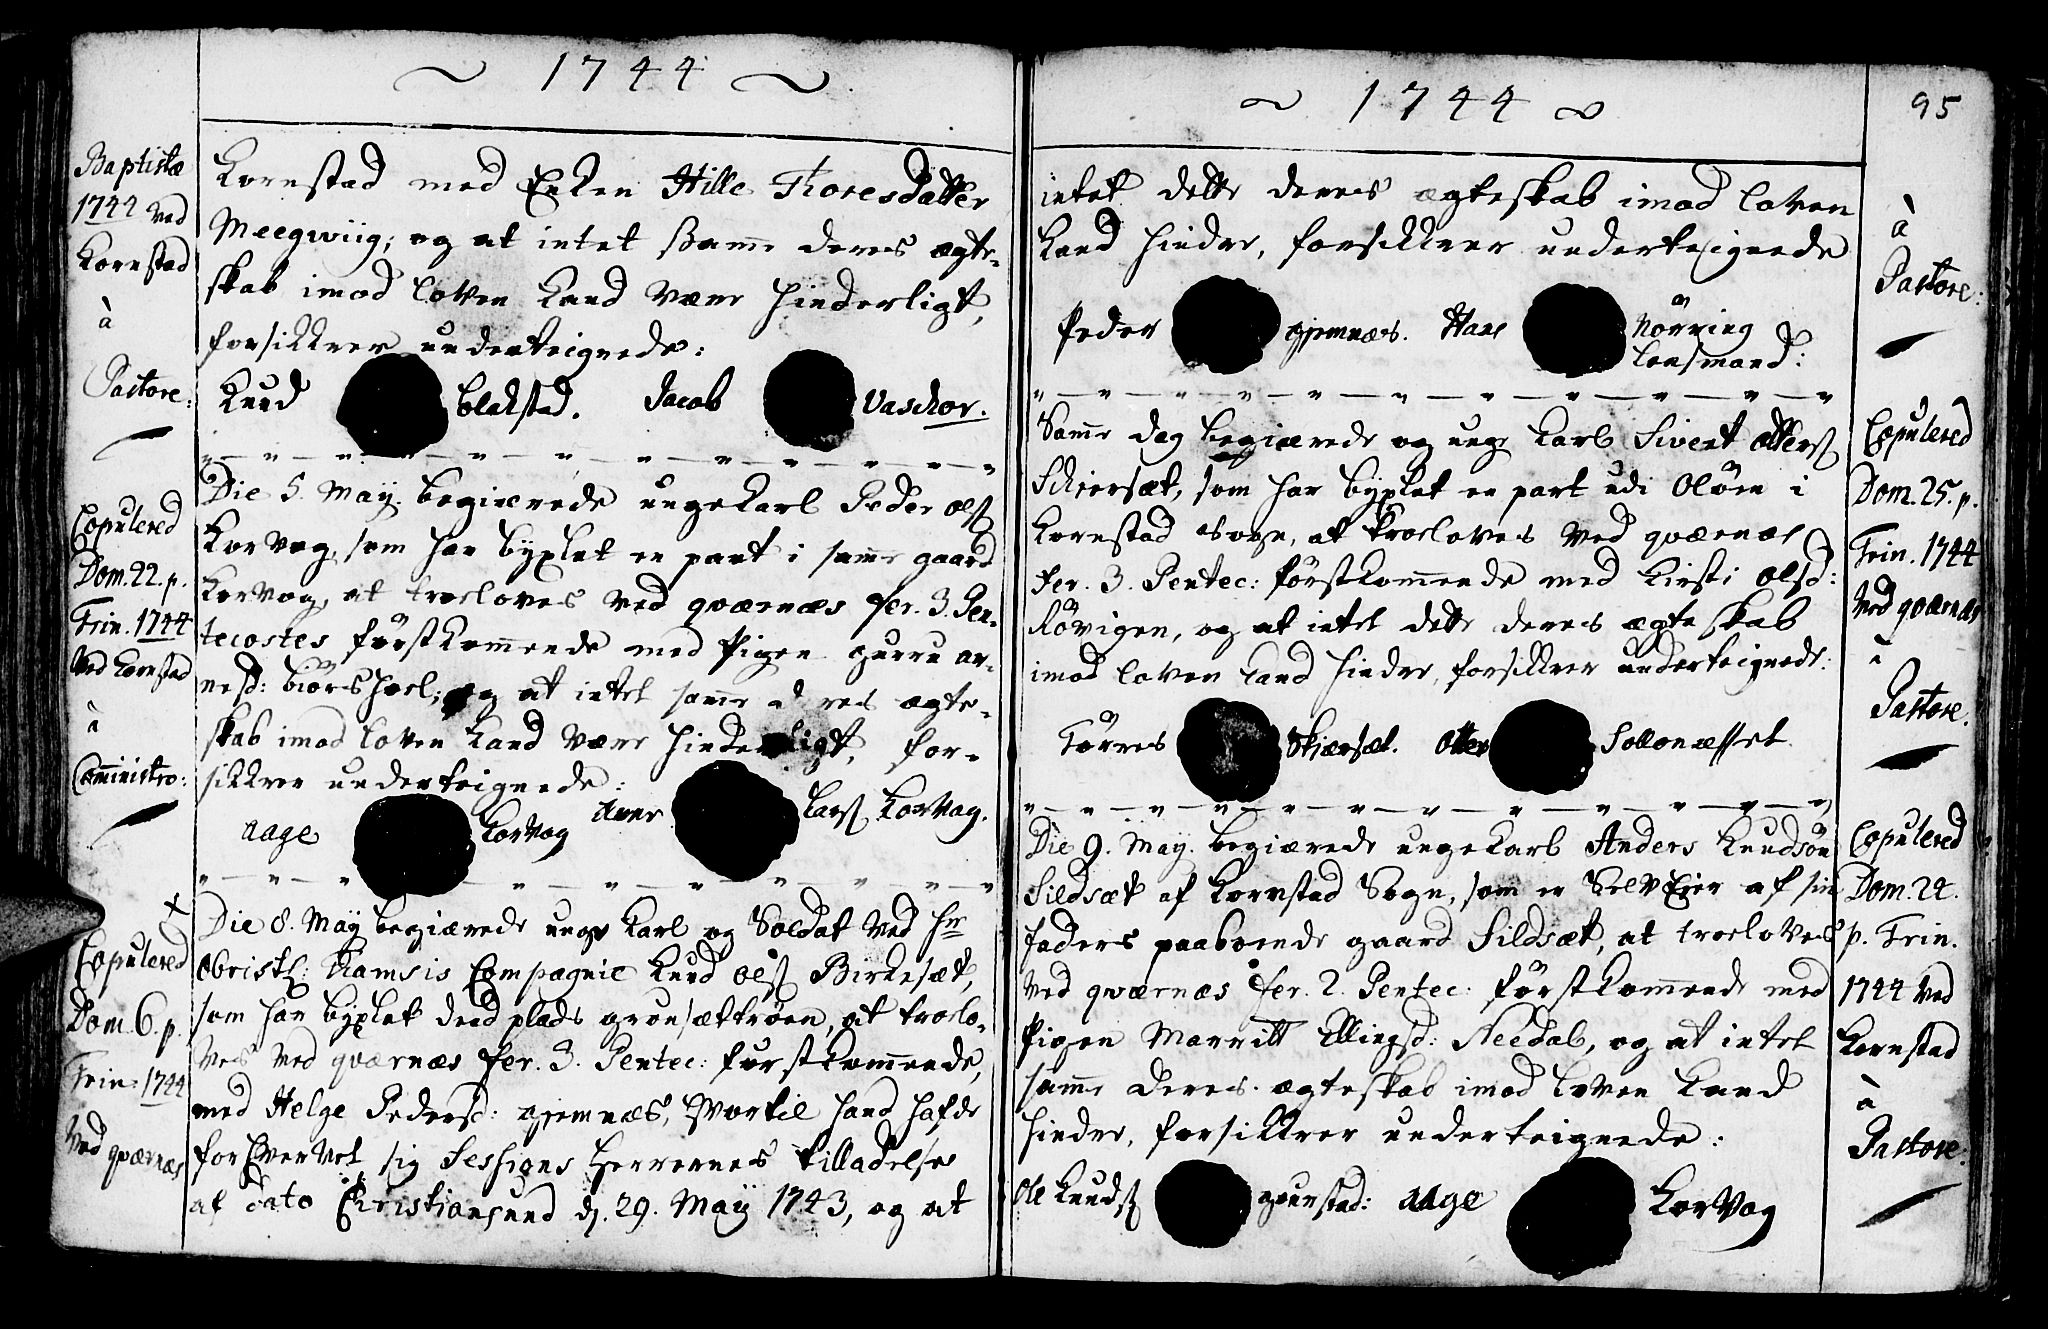 ~ 1744 ~
Baptistæ
1744 ved
Kornstad
à
Pastore:
Kornstad med Enken Hille Thoresdatter
Meegwiig; og at intet Samme deres ægte-
skab imod loven kand være hinderligt,
forsikkrer underteignede:
Knud Blakstad. Jacob Vaschor.
Copulered
Dom. 22. p.
Trin. 1744
ved Kornstad
à
Comministro:
Die 5. May begiærede ungeKarl Peder Ols
Korvog, som har byxlet en part i samme gaard
Korvog, at troeloves ved qværnæs fer. 3. Pen-
tecostes förstkommende med Pigen Gurru Ar-
nesd: biörshoel; og at intet samme deres ægte-
skab imod loven kand være hinderligt, for-
sikkrer underteignede:
Aage Korvog Lars Korvag.
+
Copulered
Dom. 6. p.
Trin: 1744
ved qværnæs
Die 8. May begiærede unge Karl og Soldat ved Hr
Obristl: Ramsis Compagnie Knud Ols Birkesæt,
som har byxlet dend plads grönsættröen, at troelo-
ves ved qværnæs fer. 3. Pentec: förstkommende,
med Helge Pedersd: gjemnæs, hvortil hand hafde
forhvervet sig Sessions Herrernes tilladelse
af dato Christiansund d. 29. May 1743, og at
~ 1744 ~
95
intet dette deres ægteskab imod loven
kand hindre, forsikkrer underteignede
Peder gjemnæs. Hans Nörning
Lensmand:
à
Pastore:
Samme dag begiærede og unge Karl Sivert Otters
Schiersæt, som har byxlet en part udi Olöen i
Kornstad Sogn, at troeloves ved qværnæs
fer. 3. Pentec: förstkommende med Kirsti Olsd:
Rövigen, og at intet dette deres ægteskab
imod loven kand hindre, forsikkrer underteignede:
Törres Skiærsæt. Otter
Copulered
Dom. 25. p.
Trin. 1744
ved qværnæs
à
Pastore.
Die 9. May. begiærede ungeKarl Anders Knudsön
Sildsæt af Kornstad Sogn, som er SelvEier af sin
faders paaboende gaard Sildsæt, at troeloves
ved qværnæs fer. 2. Pentec: förstkommende med
Pigen Marritt Ellingsd: Needal, og at intet
samme deres ægteskab imod loven kand
hindre, forsikkrer underteignede:
Ole Knuds Aage Korvog
Copulered
Dom. 22.
p. Trin.
1744 ved
Kornstad
à
Pastore: